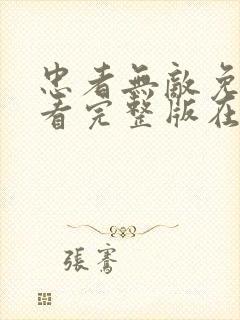 忠者無敵免
看完整版在
張騫